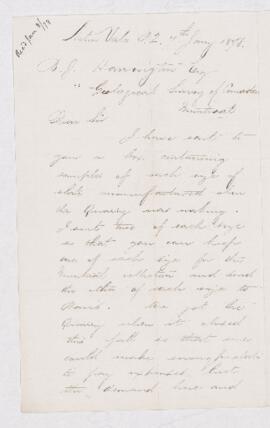 Recd Jan 8/78
P.Q. 4th Jany 1878
B. J. Harrington Esq
Geological Survey of Canada
Montreal
Dear Sir
I have sent to
you a box containing
samples of each size of
slate manufactured when
the Quarry was working.
I sent two of each size
so that you can keep
one of each size for the
Montreal collection and send
the other of each size to
Paris. We got the
Quarry when it closed
this fall so that we
could make enough slate
to pay expenses, but
the demand here and